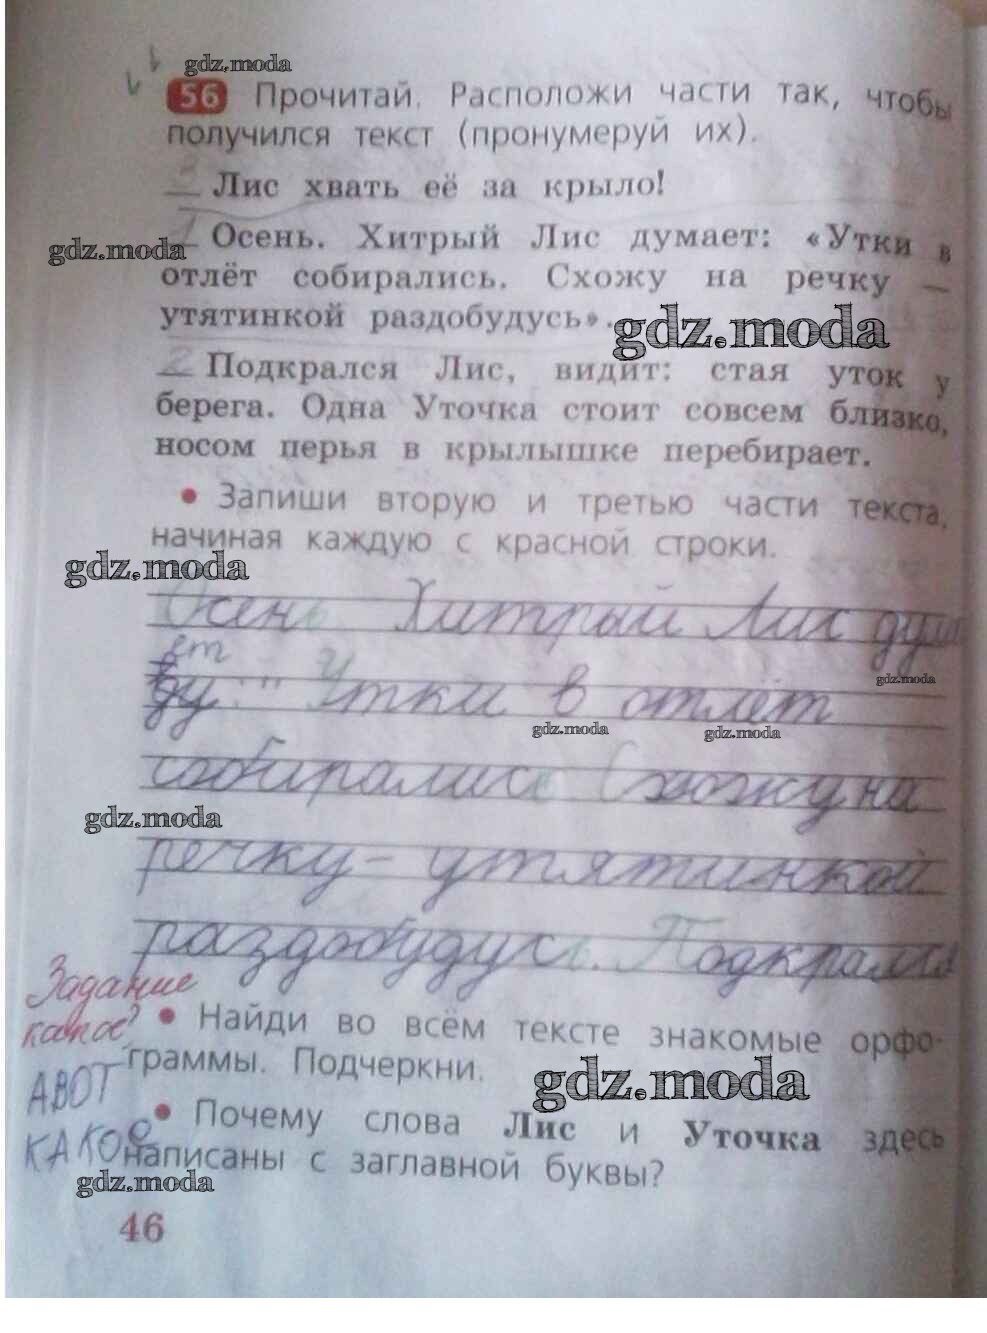 gdz.moda
56 Прочитай. Расположи части так, чтобы
получился текст (пронумеруй их).
3 Лис хвать её за крыло!
1 Осень. Хитрый Лис думает: «Утки в
gdz.moda
отлёт собирались. Схожу на речку —
утятинкой раздобудусь».
gdz.moda
2 Подкрался Лис, видит: стая уток у
берега. Одна Уточка стоит совсем близко,
носом перья в крылышке перебирает.
• Запиши вторую и третью части текста,
начиная каждую с красной строки.
gdz.moda
Осень Хитрый Лис дума
ет
ду: " Утки в отлёт
gdz.moda
gdz.moda
gdz.moda
собирались Схожу на
gdz.moda
речку - утятинкой
раздобудусь. Подкрался
Задание
какое?
• Найди во всём тексте знакомые орфо-
граммы. Подчеркни.
gdz.moda
АВОТ
КАКОЕ
• Почему слова Лис и Уточка здесь
написаны с заглавной буквы?
gdz.moda
46